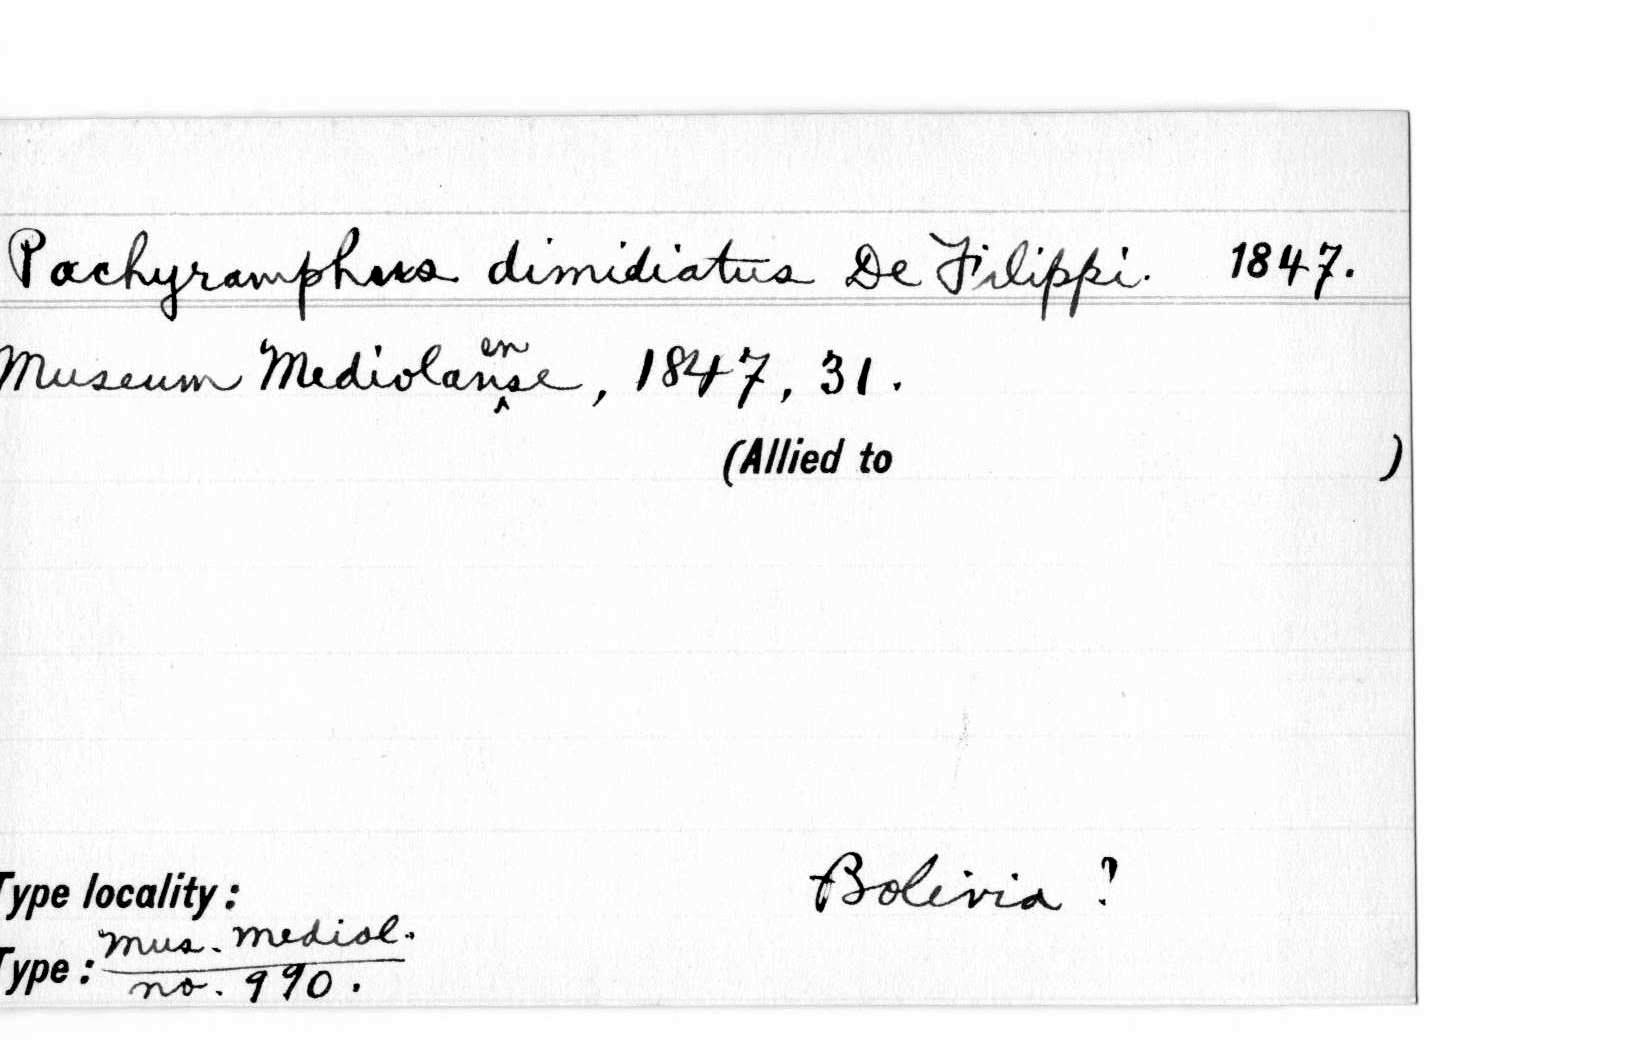 Pachyramphus dimidiatus De Filippi. 1847.
Museum Mediolanense, 1847, 31.
(Allied to )
Type locality: Bolivia ?
Type: Mus. mediol.
no. 990.